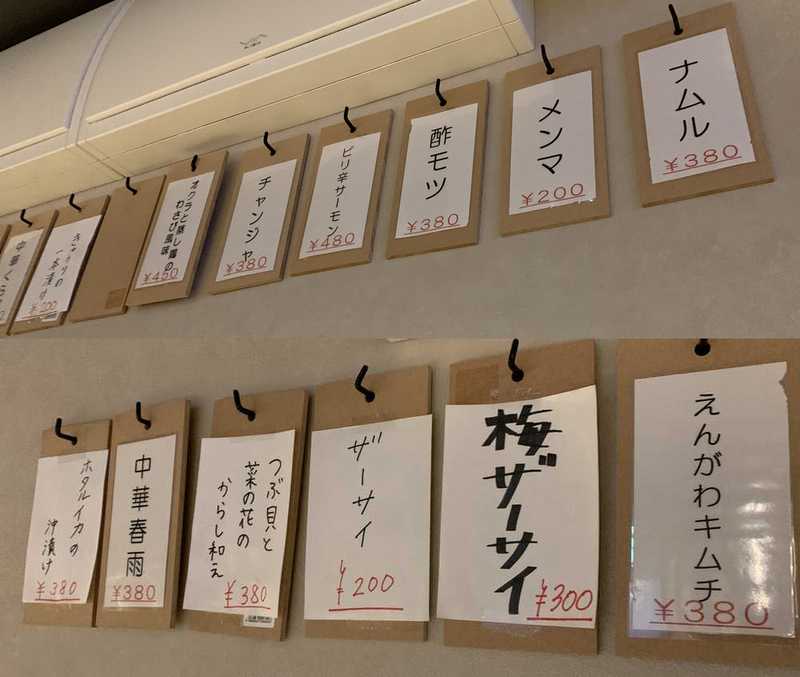 ナムル
¥380
メンマ
¥200
酢モツ
¥380
ピリ辛サーモン
¥480
チャンジャ
¥380
オクラと蒸し鶏の
わさび風味
¥450
きゅうりの
一本漬け
¥200
中華くら
えんがわキムチ
¥380
梅ザーサイ
¥300
ザーサイ
¥200
つぶ貝と
菜の花の
からし和え
¥380
中華春雨
¥380
ホタルイカの
沖漬け
¥380